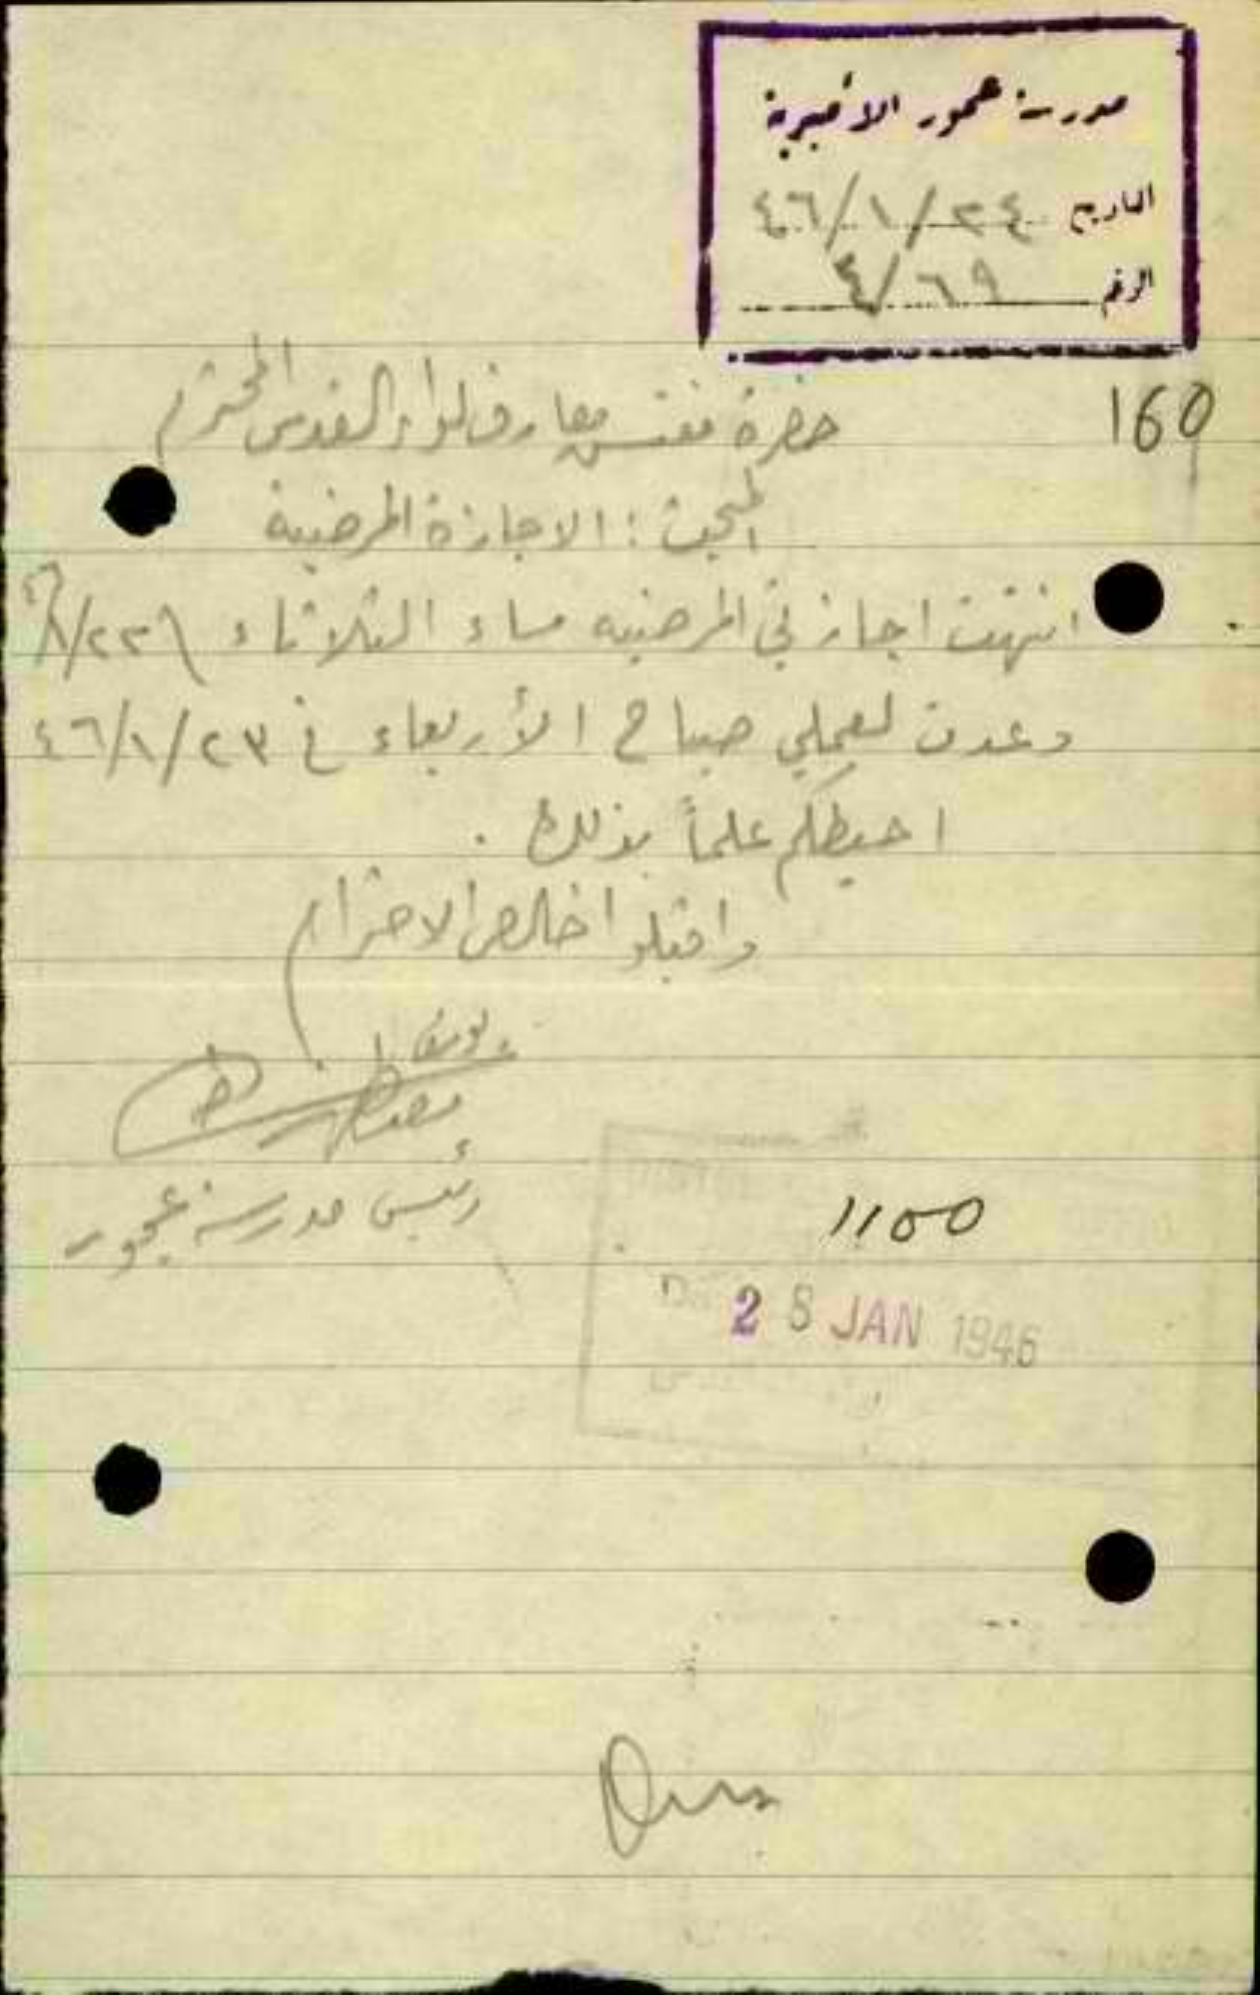 مدرسة عجور الأميرية
التاريخ ٤٦/١/٢٤
الرقم ٤/٦٩
160
حضرة مفتش معارف لواء القدس المحترم
المبحث : الاجازة المرضية
انتهت اجازتي المرضيه مساء الثلاثاء
وعدت لعملي صباح الأربعاء في ٤٦/١/٢٣
احيطكم علماً بذلك .
واقبلوا خالص الاحترام
رئيس مدرسة عجور
1150
25 JAN 1946